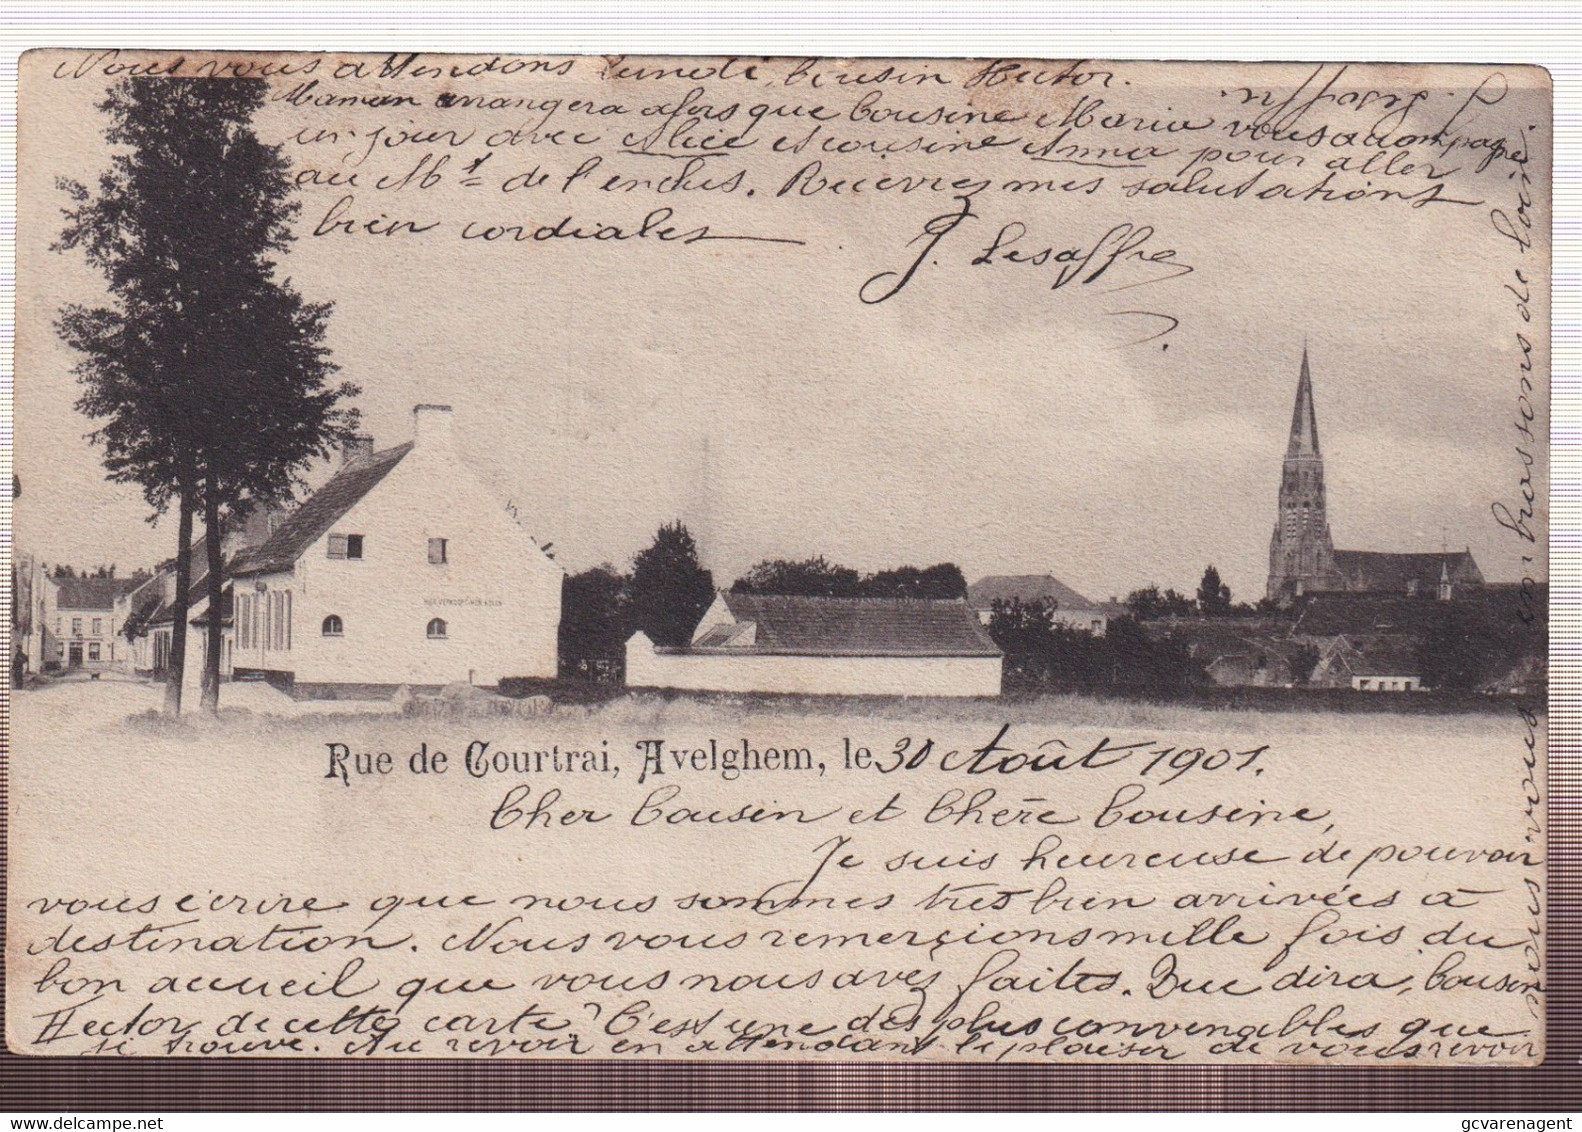 Nous vous attendons lundi, cousin Hector.
Maman arrangera alors que Cousine Maria vous accompagne
un jour avec Alice et cousine Anna pour aller
au Mt de l'enclus. Recevez mes salutations
bien cordiales
J. Lesaffre
Rue de Courtrai, Avelghem, le 30 Août 1901.
Cher Cousin et Chère Cousine,
Je suis heureuse de pouvoir
vous écrire que nous sommes très bien arrivées à
destination. Nous vous remerçions mille fois du
bon accueil que vous nous avez faites. Que dira, Cousin
Hector, de cette carte? C'est une des plus convenables que
si trouve. Au revoir en attendant le plaisir de vous revoir
nous vous en brassons de loin.